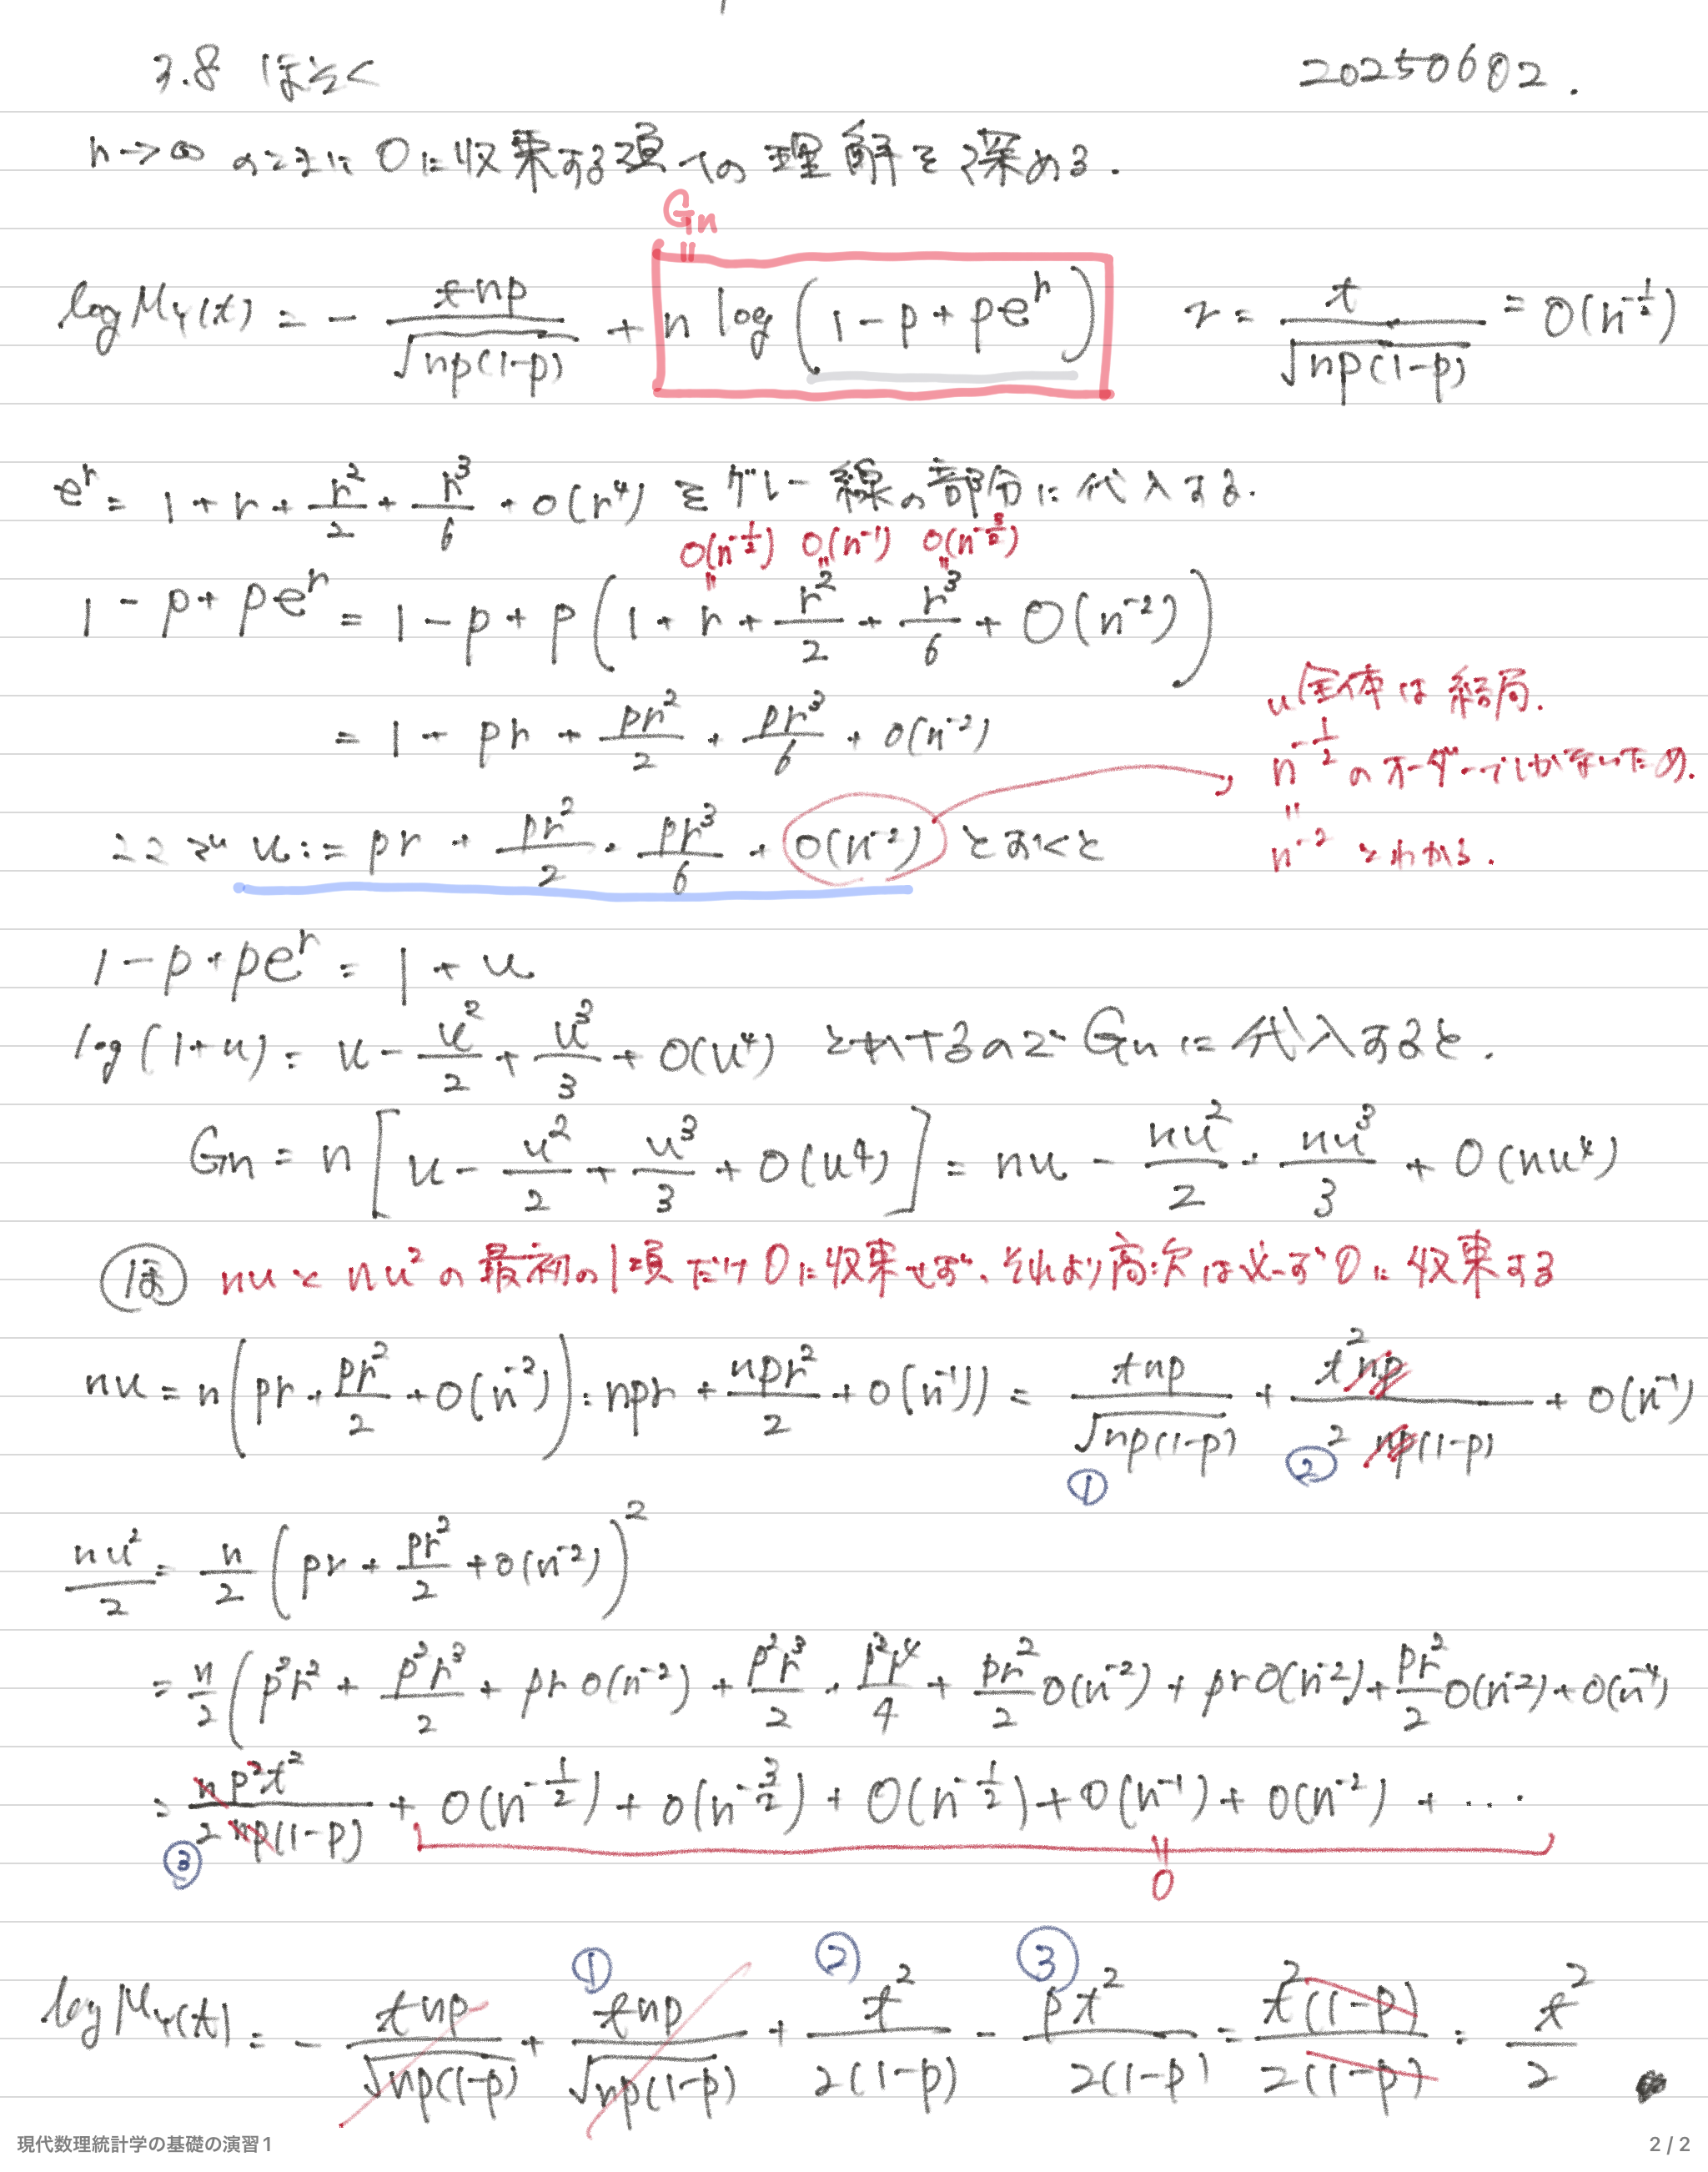 3.8 ほそく 20250602.
n→∞ のときに 0に収束する項への理解を深める.
Gn
=
log M_Y(t) = - tnp/√(np(1-p)) + n log(1-p+pe^r) r = t/√(np(1-p)) = O(n^{-1/2})
e^r = 1 + r + r^2/2 + r^3/6 + O(r^4) をグレー線の部分に代入する.
O(n^{-1/2}) O(n^{-1}) O(n^{-3/2})
1 - p + pe^r = 1 - p + p(1 + r + r^2/2 + r^3/6 + O(n^{-2}))
= 1 + pr + pr^2/2 + pr^3/6 + O(n^{-2})
u全体は結局.
n^{-1/2} のオーダーでしかないため.
ここで u := pr + pr^2/2 + pr^3/6 + O(n^{-2}) とおくと
=
n^{-2} とわかる.
1-p+pe^r = 1 + u
log(1+u) = u - u^2/2 + u^3/3 + O(u^4) とかけるので Gn に代入すると.
Gn = n[u - u^2/2 + u^3/3 + O(u^4)] = nu - nu^2/2 + nu^3/3 + O(nu^4)
ほ nuと nu^2 の最初の1項だけ0に収束せず、それより高次は必ず0に収束する
nu = n(pr + pr^2/2 + O(n^{-2})) = npr + npr^2/2 + O(n^{-1})) = tnp/√(np(1-p)) + t^2np/2 np(1-p) + O(n^{-1})
① ②
nu^2/2 = n/2 (pr + pr^2/2 + O(n^{-2}))^2
= n/2 (p^2r^2 + p^2r^3/2 + prO(n^{-2}) + p^2r^3/2 + p^2r^4/4 + pr^2/2 O(n^{-2}) + prO(n^{-2}) + pr^2/2 O(n^{-2}) + O(n^{-4})
= np^2t^2/2np(1-p) + O(n^{-1/2}) + O(n^{-3/2}) + O(n^{-1/2}) + O(n^{-1}) + O(n^{-2}) + ...
③ = 0
① ② ③
log M_Y(t) = - tnp/√(np(1-p)) + tnp/√(np(1-p)) + t^2/2(1-p) - pt^2/2(1-p) = t^2(1-p)/2(1-p) = t^2/2
現代数理統計学の基礎の演習1 2 / 2